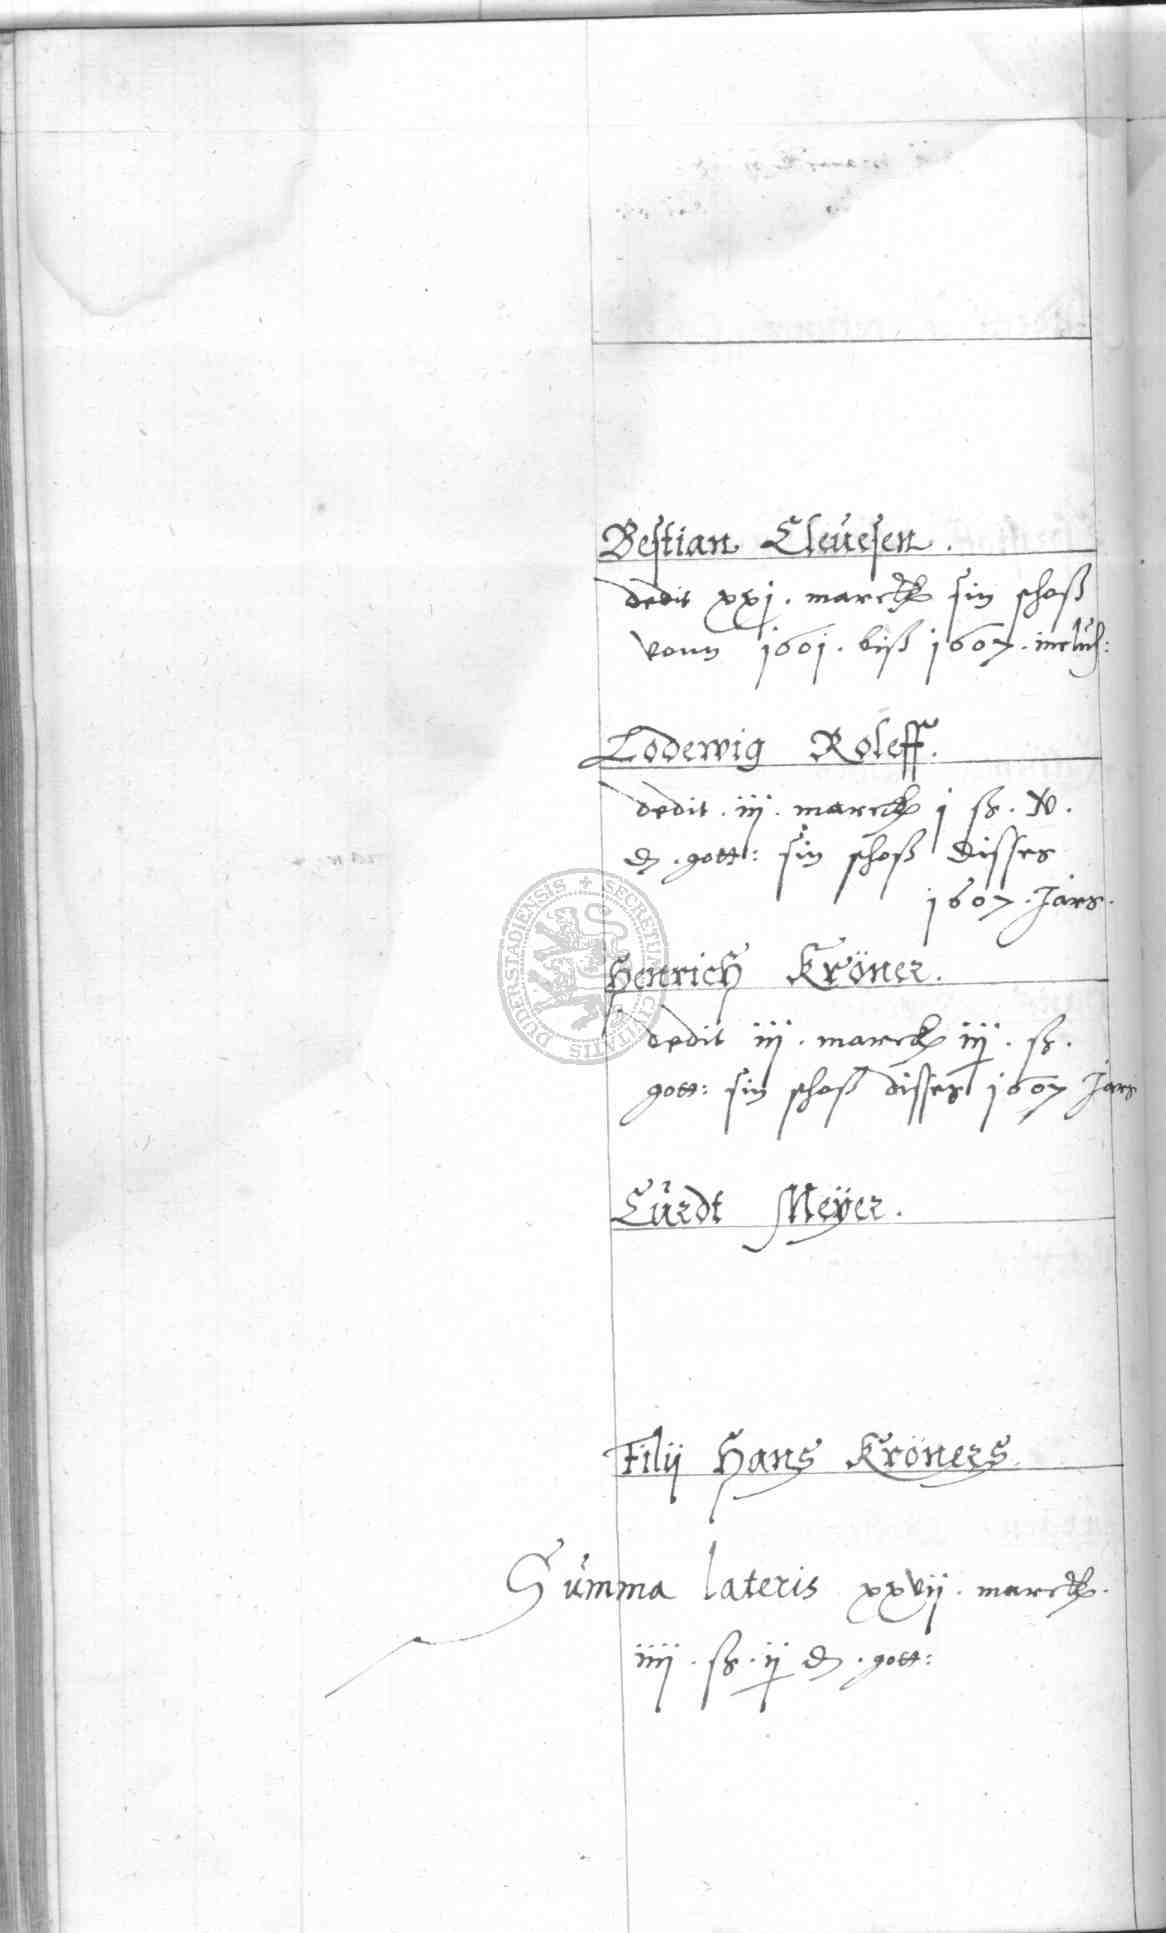 Bestian Cleuesen.
dedit xxj. marck sin schoß
vonn 1601. biß 1607. inclus:
Lodewig Roleff.
dedit. iij. marck j ß. xv.
d. gott: sin schoß disses
1607. Jars.
Henrich Kröner.
dedit iij. marck iij. ß.
gott: sin schoß disses 1607 Jars
Curdt Meÿer.
Filij Hans Kröners
Summa lateris xxvij. marck.
iiij. ß. ij d. gott:
SECRETUM CIVITATIS DUDERSTADIENSIS